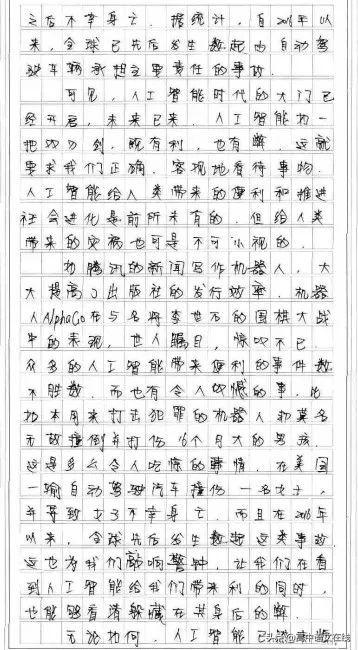 之后不幸身亡。据统计，自2016年以
来，全球已先后发生数起由自动驾
驶车辆承担主要责任的事故。
可见，人工智能时代的大门已
经开启，未来已来。人工智能如一
把双刃剑，既有利，也有弊，这就
要求我们正确、客观地看待事物。
人工智能给人类带来的便利和推进
社会进化是前所未有的，但给人类
带来的灾祸也可是不可小视的。
如腾讯的新闻写作机器人，大
大提高了出版社的发行效率，机器
人AlphaGo在与名将李世石的围棋大战
中的表现，世人瞩目，惊叹不已。
众多的人工智能带来便利的事件数
不胜数，而也有令人叹憾的事，比
如本用来打击犯罪的机器人却莫名
无故撞倒并打伤16个月大的男孩，
这是多么令人吃惊的事情，在美国
一辆自动驾驶汽车撞伤一名女士，
并导致女子不幸身亡，而且在2016年
以来，全球先后发生数起这类事故
这也为我们敲响警钟，让我们在看
到人工智能给我们带来利的同时，
也能够看清躲藏在其身后的弊。
无论如何，人工智能已
头条@高中语文在线